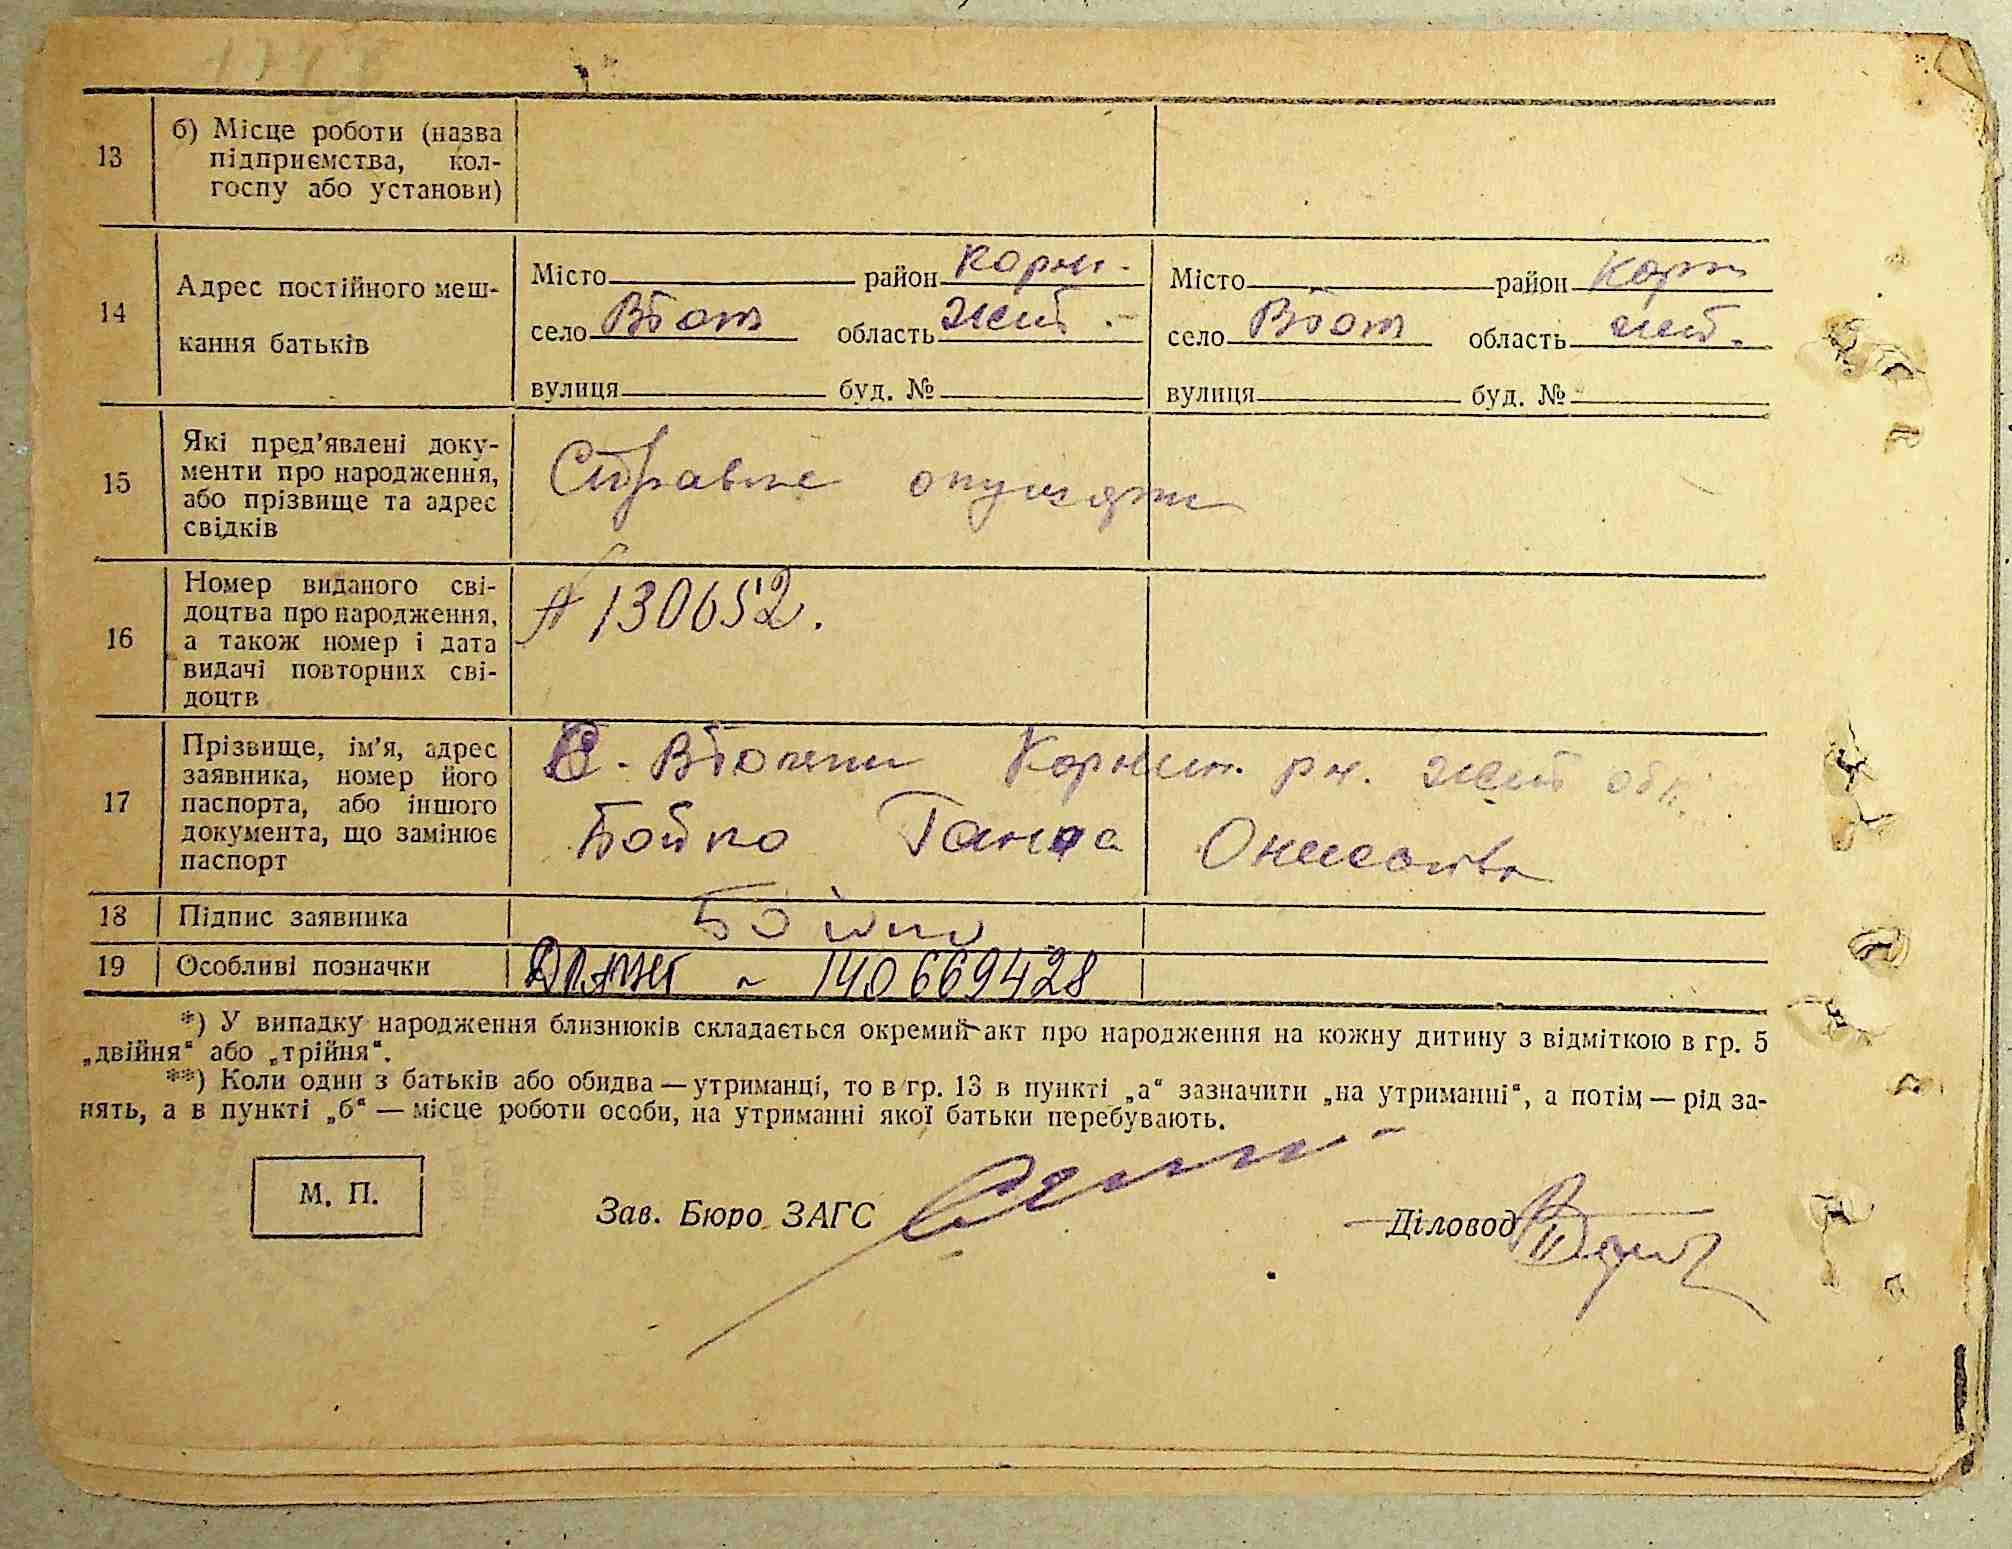 13
б) Місце роботи (назва
підприємства, кол-
госпу або установи)
14
Адрес постійного меш-
кання батьків
Місто район Корни. Місто район Корн
село Втот область Жит. село Втот область жит.
вулиця буд. № вулиця буд. №
15
Які пред’явлені доку-
менти про народження,
або прізвище та адрес
свідків
16
Номер виданого сві-
доцтва про народження,
а також номер і дата
видачі повторних сві-
доцтв
130652.
17
Прізвище, ім’я, адрес
заявника, номер його
паспорта, або іншого
документа, що замінює
паспорт
Корнин. рн. жит обл.
Бойко Ганна
18 Підпис заявника Бойко
19 Особливі позначки 140669428
*) У випадку народження близнюків складається окремий акт про народження на кожну дитину з відміткою в гр. 5
„двійня“ або „трійня“.
**) Коли один з батьків або обидва — утриманці, то в гр. 13 в пункті „а“ зазначити „на утриманні“, а потім — рід за-
нять, а в пункті „б“ — місце роботи особи, на утриманні якої батьки перебувають.
М. П. Зав. Бюро ЗАГС Діловод